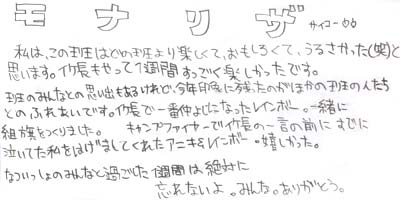 モナリザ サイコー
私は、この班はどの班より楽しくて、おもしろくて、うるさかった(笑)と
思います。イ村長もやって1週間すっごく楽しかったです。
班のみんなとの思い出もあるけれど、今年印象に残ったのがほかの班の人たち
とのふれあいです。イ村長で一番仲よしになったレインボー。一緒に
組旗をつくりました。 キャンプファイヤーでイ村長の一言の前にすでに
泣いてた私をはげましてくれたアニキ&レインボー・嬉しかった。
なついっしょのみんなと過ごした1週間は絶対に
忘れないよ。みんな。ありがとう。